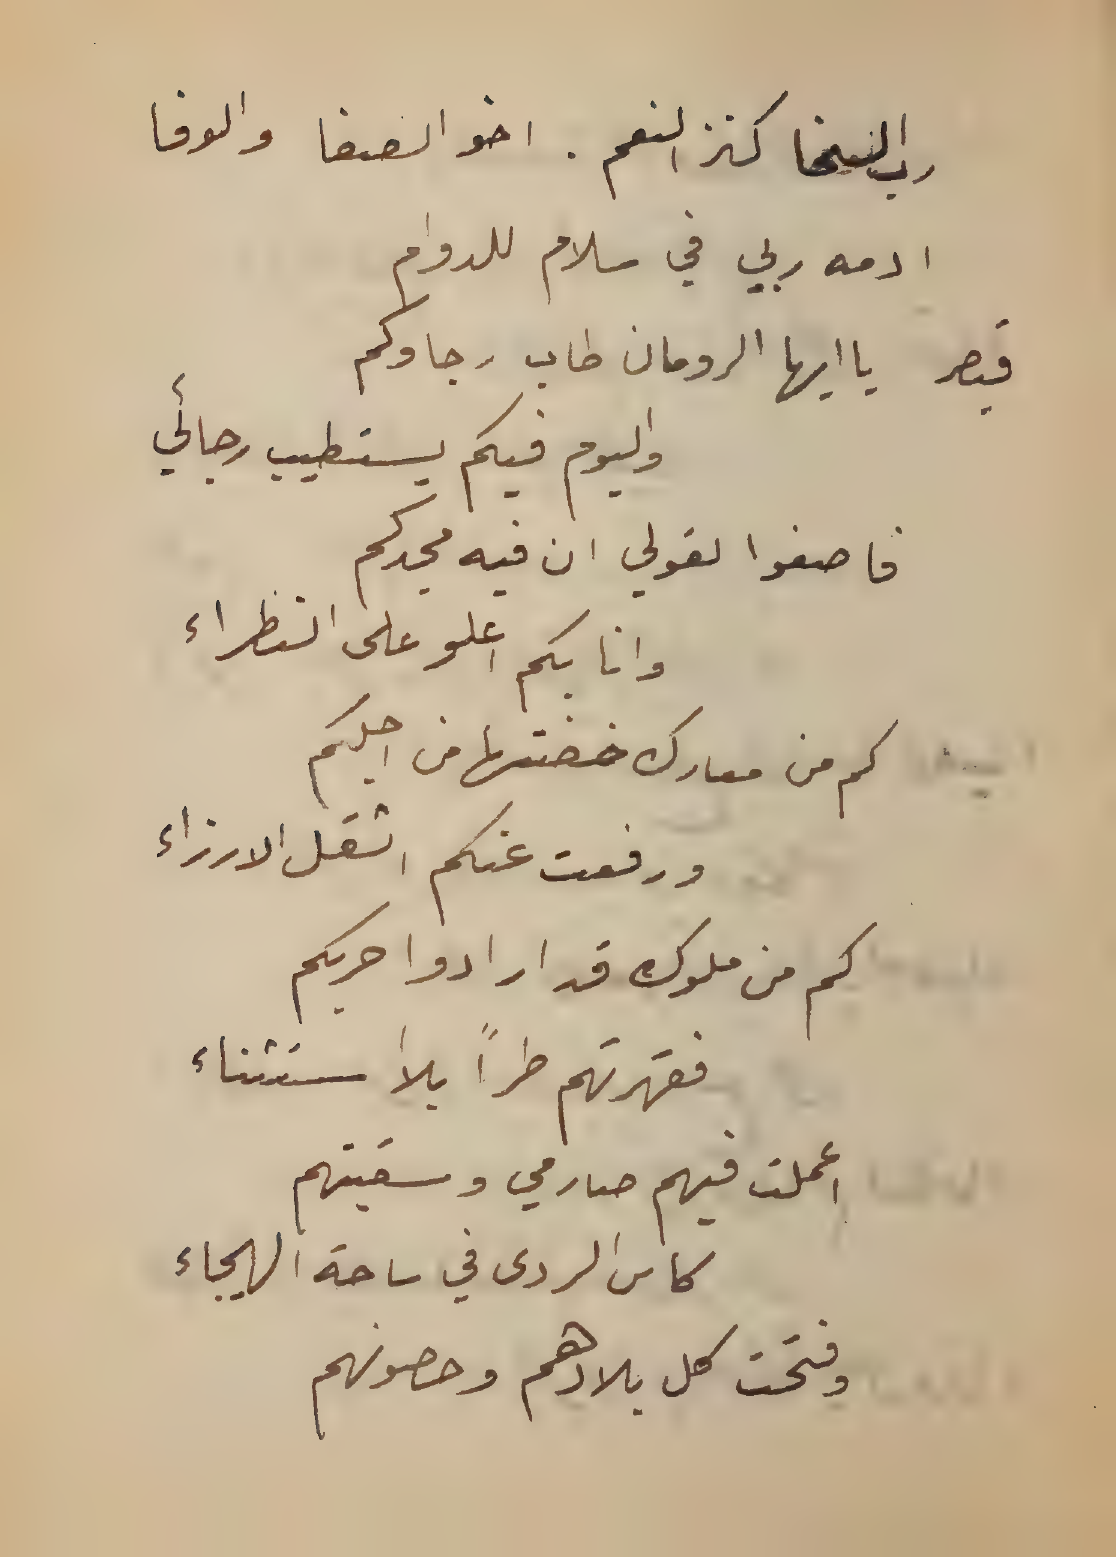 رب السخا كنز النعم . اخو الصفا والوفا
ادمه ربي في سلام للدوام
قيصر يا ايها الرومان طاب رجاوكم
واليوم فيكم يستطيب رجائي
فاصغوا لقولي ان فيه مجدكم
وانا بكم اعلو على النظراء
كم من معارك خضتها من اجلكم
ورفعت عنكم اثقل الارزاء
كم من ملوك قد ارادوا حربكم
فقهرتهم طراً بلا استثناء
اعملت فيهم صارمي وسقيتهم
كاس الردى في ساحة الهيجاء
وفتحت كل بلادهم وحصونهم